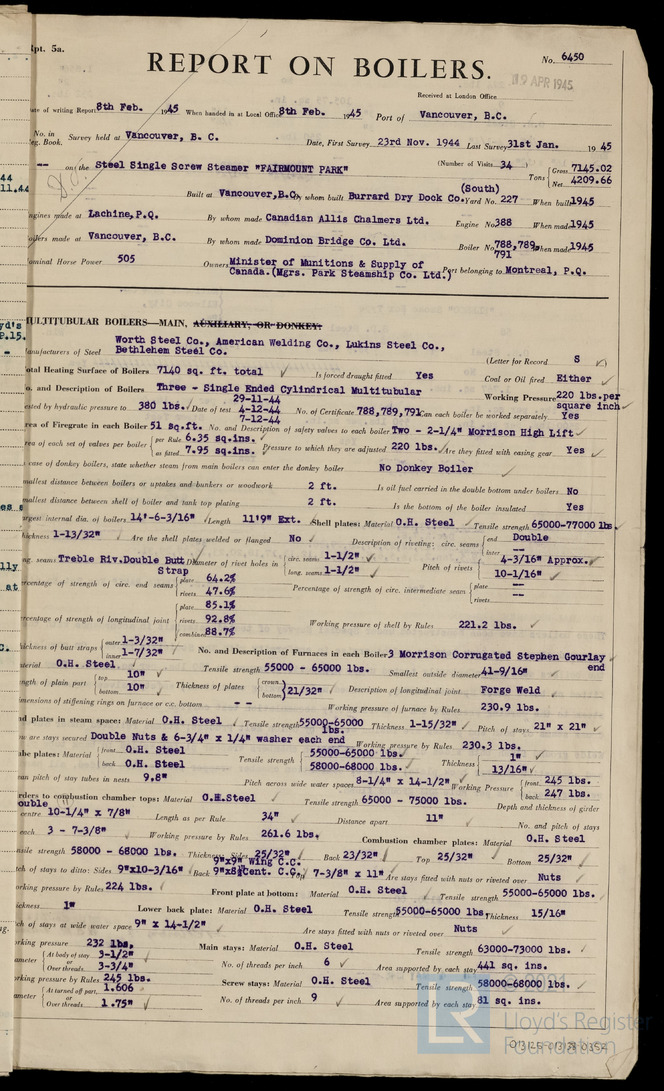 Rpt. 5a.
No. 6450
REPORT ON BOILERS.
19 APR 1945
Received at London Office
ate of writing Report 8th Feb. 1945 When handed in at Local Office 8th Feb. 1945 Port of Vancouver, B.C.
No. in
eg. Book. Survey held at Vancouver, B. C. Date, First Survey 23rd Nov. 1944 Last Survey 31st Jan. 1945
-- on the Steel Single Screw Steamer "FAIRMOUNT PARK" (Number of Visits 34 Tons { Gross 7145.02
Net 4209.66
44
11.44
(South)
Built at Vancouver,B.C. By whom built Burrard Dry Dock Co. Yard No. 227 When built 1945
ngines made at Lachine,P.Q. By whom made Canadian Allis Chalmers Ltd. Engine No. 388 When made 1945
oilers made at Vancouver, B.C. By whom made Dominion Bridge Co. Ltd. Boiler No. 788,789, 791 When made 1945
ominal Horse Power 505 Owners Minister of Munitions & Supply of
Canada.(Mgrs. Park Steamship Co. Ltd.) Port belonging to Montreal, P.Q.
ULTITUBULAR BOILERS—MAIN, AUXILIARY, OR DONKEY.
anufacturers of Steel Worth Steel Co., American Welding Co., Lukins Steel Co.,
Bethlehem Steel Co.
(Letter for Record S )
otal Heating Surface of Boilers 7140 sq. ft. total Is forced draught fitted Yes Coal or Oil fired Either
o. and Description of Boilers Three - Single Ended Cylindrical Multitubular Working Pressure 220 lbs.per
square inch
ested by hydraulic pressure to 380 lbs. Date of test 29-11-44
4-12-44
7-12-44
No. of Certificate 788,789,791 Can each boiler be worked separately Yes
rea of Firegrate in each Boiler 51 sq.ft. No. and Description of safety valves to each boiler Two - 2-1/4" Morrison High Lift
rea of each set of valves per boiler { per Rule 6.35 sq.ins.
as fitted 7.95 sq.ins. Pressure to which they are adjusted 220 lbs. Are they fitted with easing gear Yes
case of donkey boilers, state whether steam from main boilers can enter the donkey boiler No Donkey Boiler
mallest distance between boilers or uptakes and bunkers or woodwork 2 ft. Is oil fuel carried in the double bottom under boilers No
mallest distance between shell of boiler and tank top plating 2 ft. Is the bottom of the boiler insulated Yes
argest internal dia. of boilers 14'-6-3/16" Length 11'9" Ext. Shell plates: Material O.H. Steel Tensile strength 65000-77000 lbs.
hickness 1-13/32" Are the shell plates welded or flanged No Description of riveting: circ. seams { end Double
inter --
ng. seams Treble Riv.Double Butt
Strap
Diameter of rivet holes in { circ. seams 1-1/2"
long. seams 1-1/2"
Pitch of rivets { 4-3/16" Approx.
10-1/16"
ercentage of strength of circ. end seams { plate 64.2%
rivets 47.6%
Percentage of strength of circ. intermediate seam { plate --
rivets --
ercentage of strength of longitudinal joint { plate 85.1%
rivets 92.8%
combined 88.7%
Working pressure of shell by Rules 221.2 lbs.
hickness of butt straps { outer 1-3/32"
inner 1-7/32"
No. and Description of Furnaces in each Boiler 3 Morrison Corrugated Stephen Gourlay
end
aterial O.H. Steel Tensile strength 55000 - 65000 lbs. Smallest outside diameter 41-9/16"
ngth of plain part { top 10"
bottom 10"
Thickness of plates { crown
bottom } 21/32" Description of longitudinal joint Forge Weld
imensions of stiffening rings on furnace or c.c. bottom -- Working pressure of furnace by Rules 230.9 lbs.
nd plates in steam space: Material O.H. Steel Tensile strength 55000-65000
lbs.
Thickness 1-15/32" Pitch of stays 21" x 21"
ow are stays secured Double Nuts & 6-3/4" x 1/4" washer each end Working pressure by Rules 230.3 lbs.
ube plates: Material { front O.H. Steel
back O.H. Steel
Tensile strength { 55000-65000 lbs.
58000-68000 lbs.
Thickness { 1"
13/16"
ean pitch of stay tubes in nests 9.8" Pitch across wide water spaces 8-1/4" x 14-1/2" Working Pressure { front 245 lbs.
back 247 lbs.
rders to combustion chamber tops: Material O.H.Steel Tensile strength 65000 - 75000 lbs. Depth and thickness of girder
ouble
centre 10-1/4" x 7/8" Length as per Rule 34" Distance apart 11" No. and pitch of stays
each 3 - 7-3/8" Working pressure by Rules 261.6 lbs. Combustion chamber plates: Material O.H. Steel
nsile strength 58000 - 68000 lbs. Thickness: Sides 25/32" Back 23/32" Top 25/32" Bottom 25/32"
9"x9" Wing C.C.
tch of stays to ditto: Sides 9"x10-3/16" Back 9"x8 Cent. C.C. Top 7-3/8" x 11" Are stays fitted with nuts or riveted over Nuts
orking pressure by Rules 224 lbs. Front plate at bottom: Material O.H. Steel Tensile strength 55000-65000 lbs.
ickness 1" Lower back plate: Material O.H. Steel Tensile strength 55000-65000 lbs. Thickness 15/16"
ch of stays at wide water space 9" x 14-1/2" Are stays fitted with nuts or riveted over Nuts
orking pressure 232 lbs. Main stays: Material O.H. Steel Tensile strength 63000-73000 lbs.
ameter { At body of stay 3-1/2"
or
Over threads 3-3/4"
No. of threads per inch 6 Area supported by each stay 441 sq. ins.
orking pressure by Rules 245 lbs. Screw stays: Material O.H. Steel Tensile strength 58000-68000 lbs.
ameter { At turned off part 1.606
or
Over threads 1.75"
No. of threads per inch 9 Area supported by each stay 81 sq. ins.
© 2021
LR
Lloyd's Register
Foundation